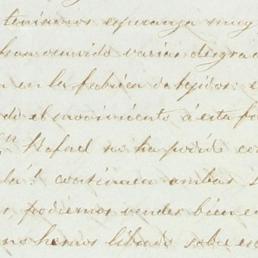 tenemos esperanza muy
han venido varias desgra
n en la fabrica de tejidos: e
do el movimiento á esta fa
Rafael no ha podido co
continuan ambas
podremos vender bien e
no hemos librado sobre es